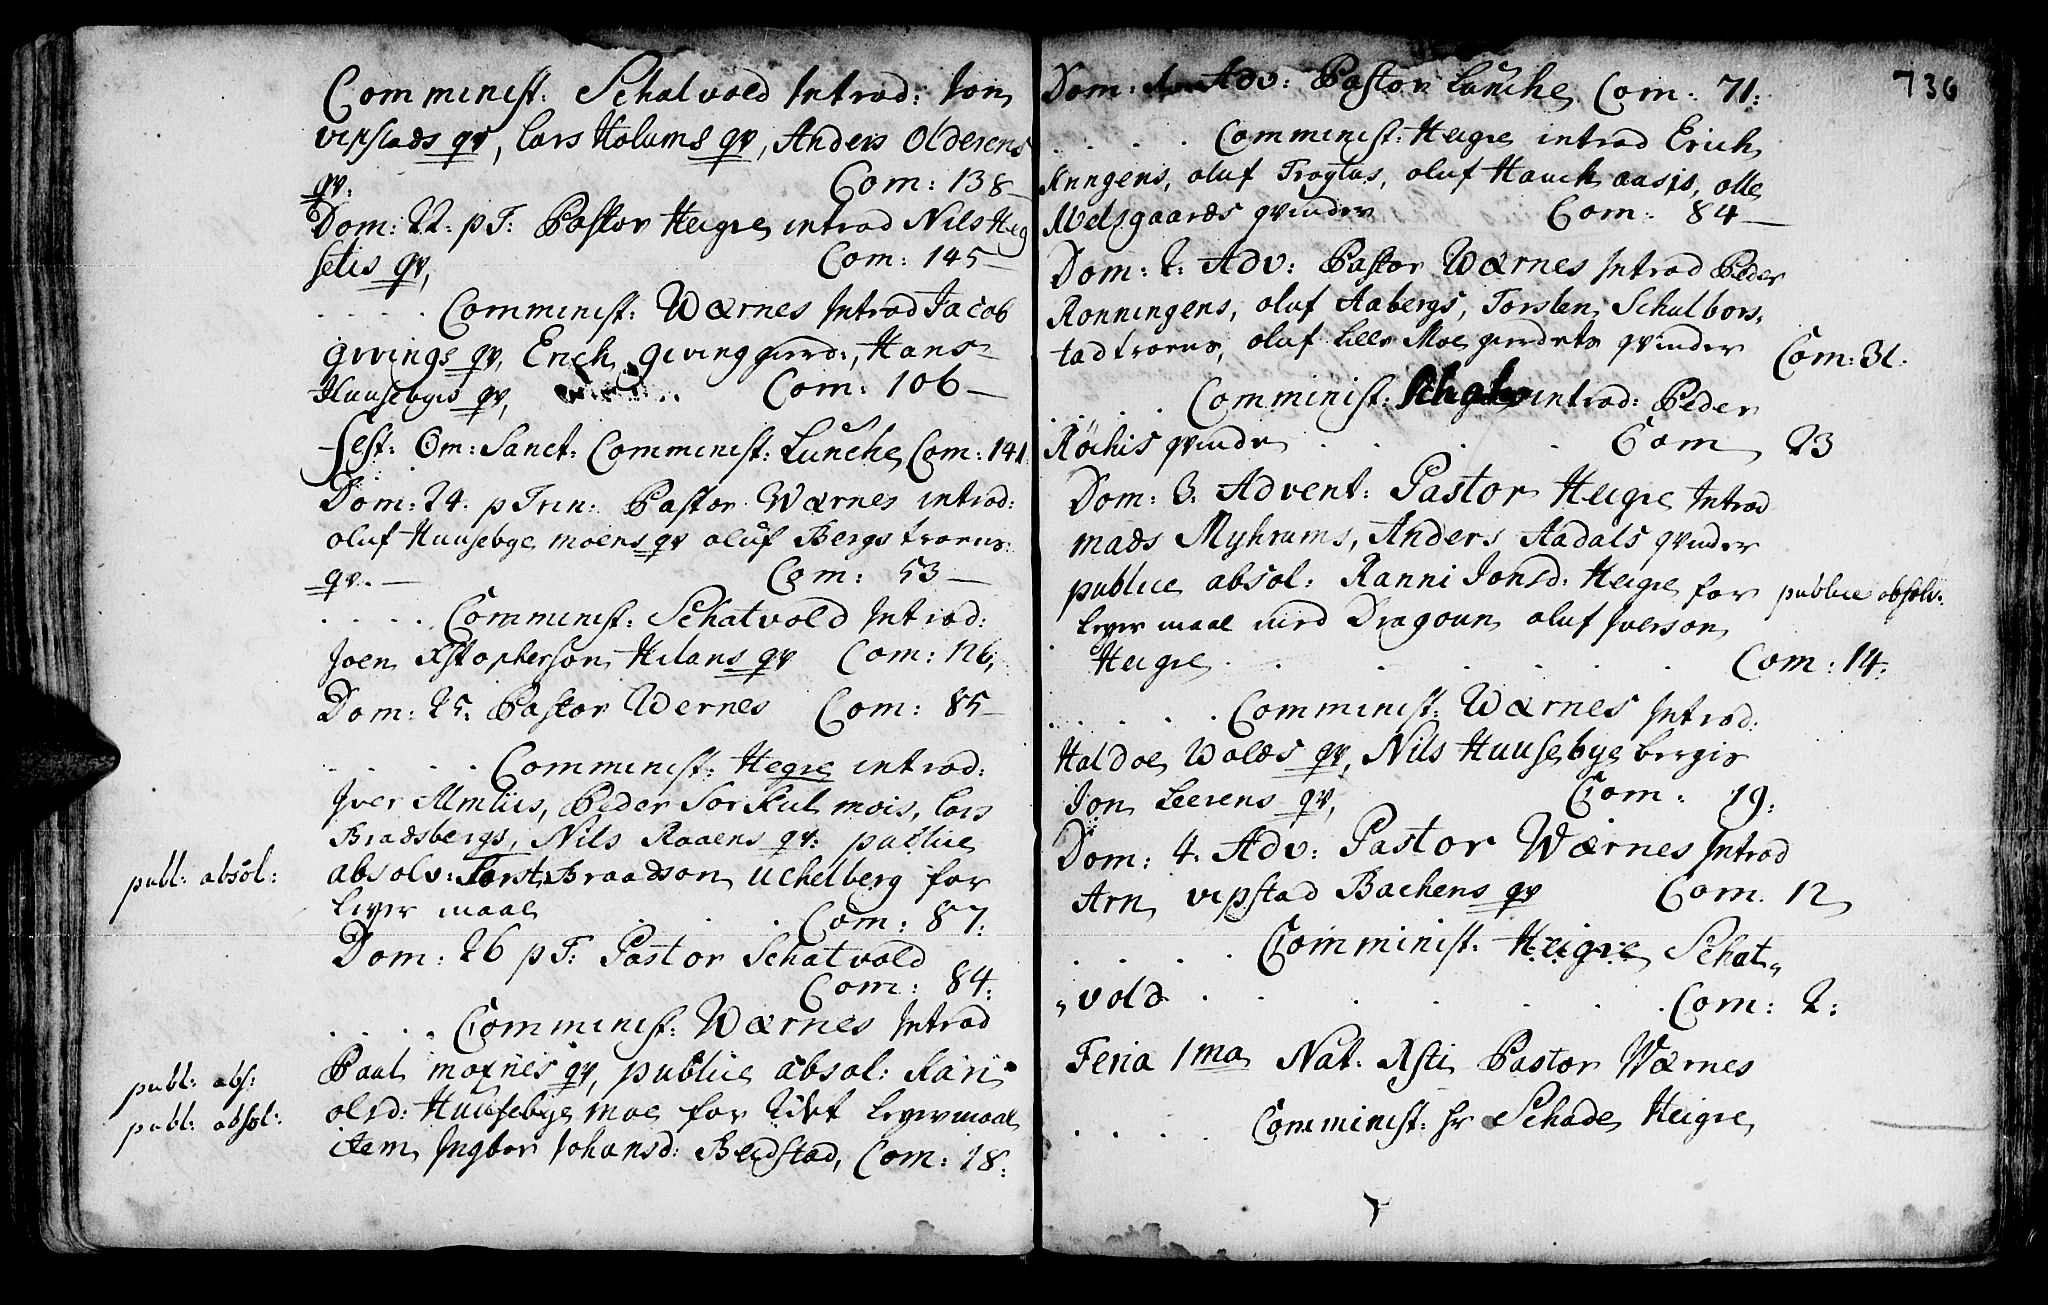 Comminist: Schatvold Introd: Jon
vipstads qv, Lars Holums qv, Anders Olderens
qv. Com: 138
Dom: 22. p T: Pastor Heigre introd Nils Heg
setis qv, Com: 145
. . . . Comminist: Wærnes Introd Jacob
Givings qv, Erich Giving gierd:, Hans
Huusebyis qv, Com: 106
Fest: Om: Sanct: Comminist: Lunche Com: 141
Dom: 24. p Trin: Pastor Wærnes introd:
oluf Huusebye moens qv oluf Bergs troens
qv. Com: 53
. . . . Comminist: Schatvold Introd:
Joen Xstopherson Hilans qv Com: 126,
Dom: 25. Pastor Wernes Com: 85
. . . . Comminist: Hegre introd:
Iver Almlies, Peder Sorskul mois, Lars
Bradsbergs, Nils Raaens qv: publice
publ: absol: absolv: Torst: Braadson Uchelberg for
leyermaal . . . Com: 87:
Dom: 26 p T: Pastor Schatvold
Com: 84:
. . . . Comminist: Wærnes Introd
publ: abs: Paul moxnes qv, publice absol: Kari
publ: absol: olsd: Huusebye moe for 2det leyermaal
item Ingbor Johansd: Beidstad, Com: 18:
736
Dom: Adv: Pastor Lunche Com: 71:
. . . . Comminist: Heigre introd Erich
Anngens, oluf Trøytes, oluf Hauch aasis, olle
Melsgaards qvinder Com: 84
Dom: 2: Adv: Pastor Wærnes Introd Peder
Ronningens, oluf Aabergs, Torsten Schulbors,
tad troens, oluf Lille Moe gierdets qvinder Com: 31.
. . . . Comminist: introd: Peder
Røkis qvinde . . . Com 23
Dom: 3. Advent: Pastor Heigre Introd
mads Myhrums, Anders Aadals qvinder
publice absol: Ranni Jonsd: Heigre for publice absolv:
leyermaal med Dragoun oluf Iverson
Heigre . . . . . . Com: 14:
. . . . . Comminist: Wærnes Introd:
Haldoe Wolds qv, Nils Huusebye bergis
Jon Leerens qv, Com: 19:
Dom: 4. Adv: Pastor Wærnes Introd
Arn vipstad Bachens qv Com. 12
. . . . Comminist: Heigre Schat„
„vold . . . . . Com: 2:
Feria 1ma Nat: Xsti Pastor Wærnes
. . . . Comminist: hr Schade Heigre